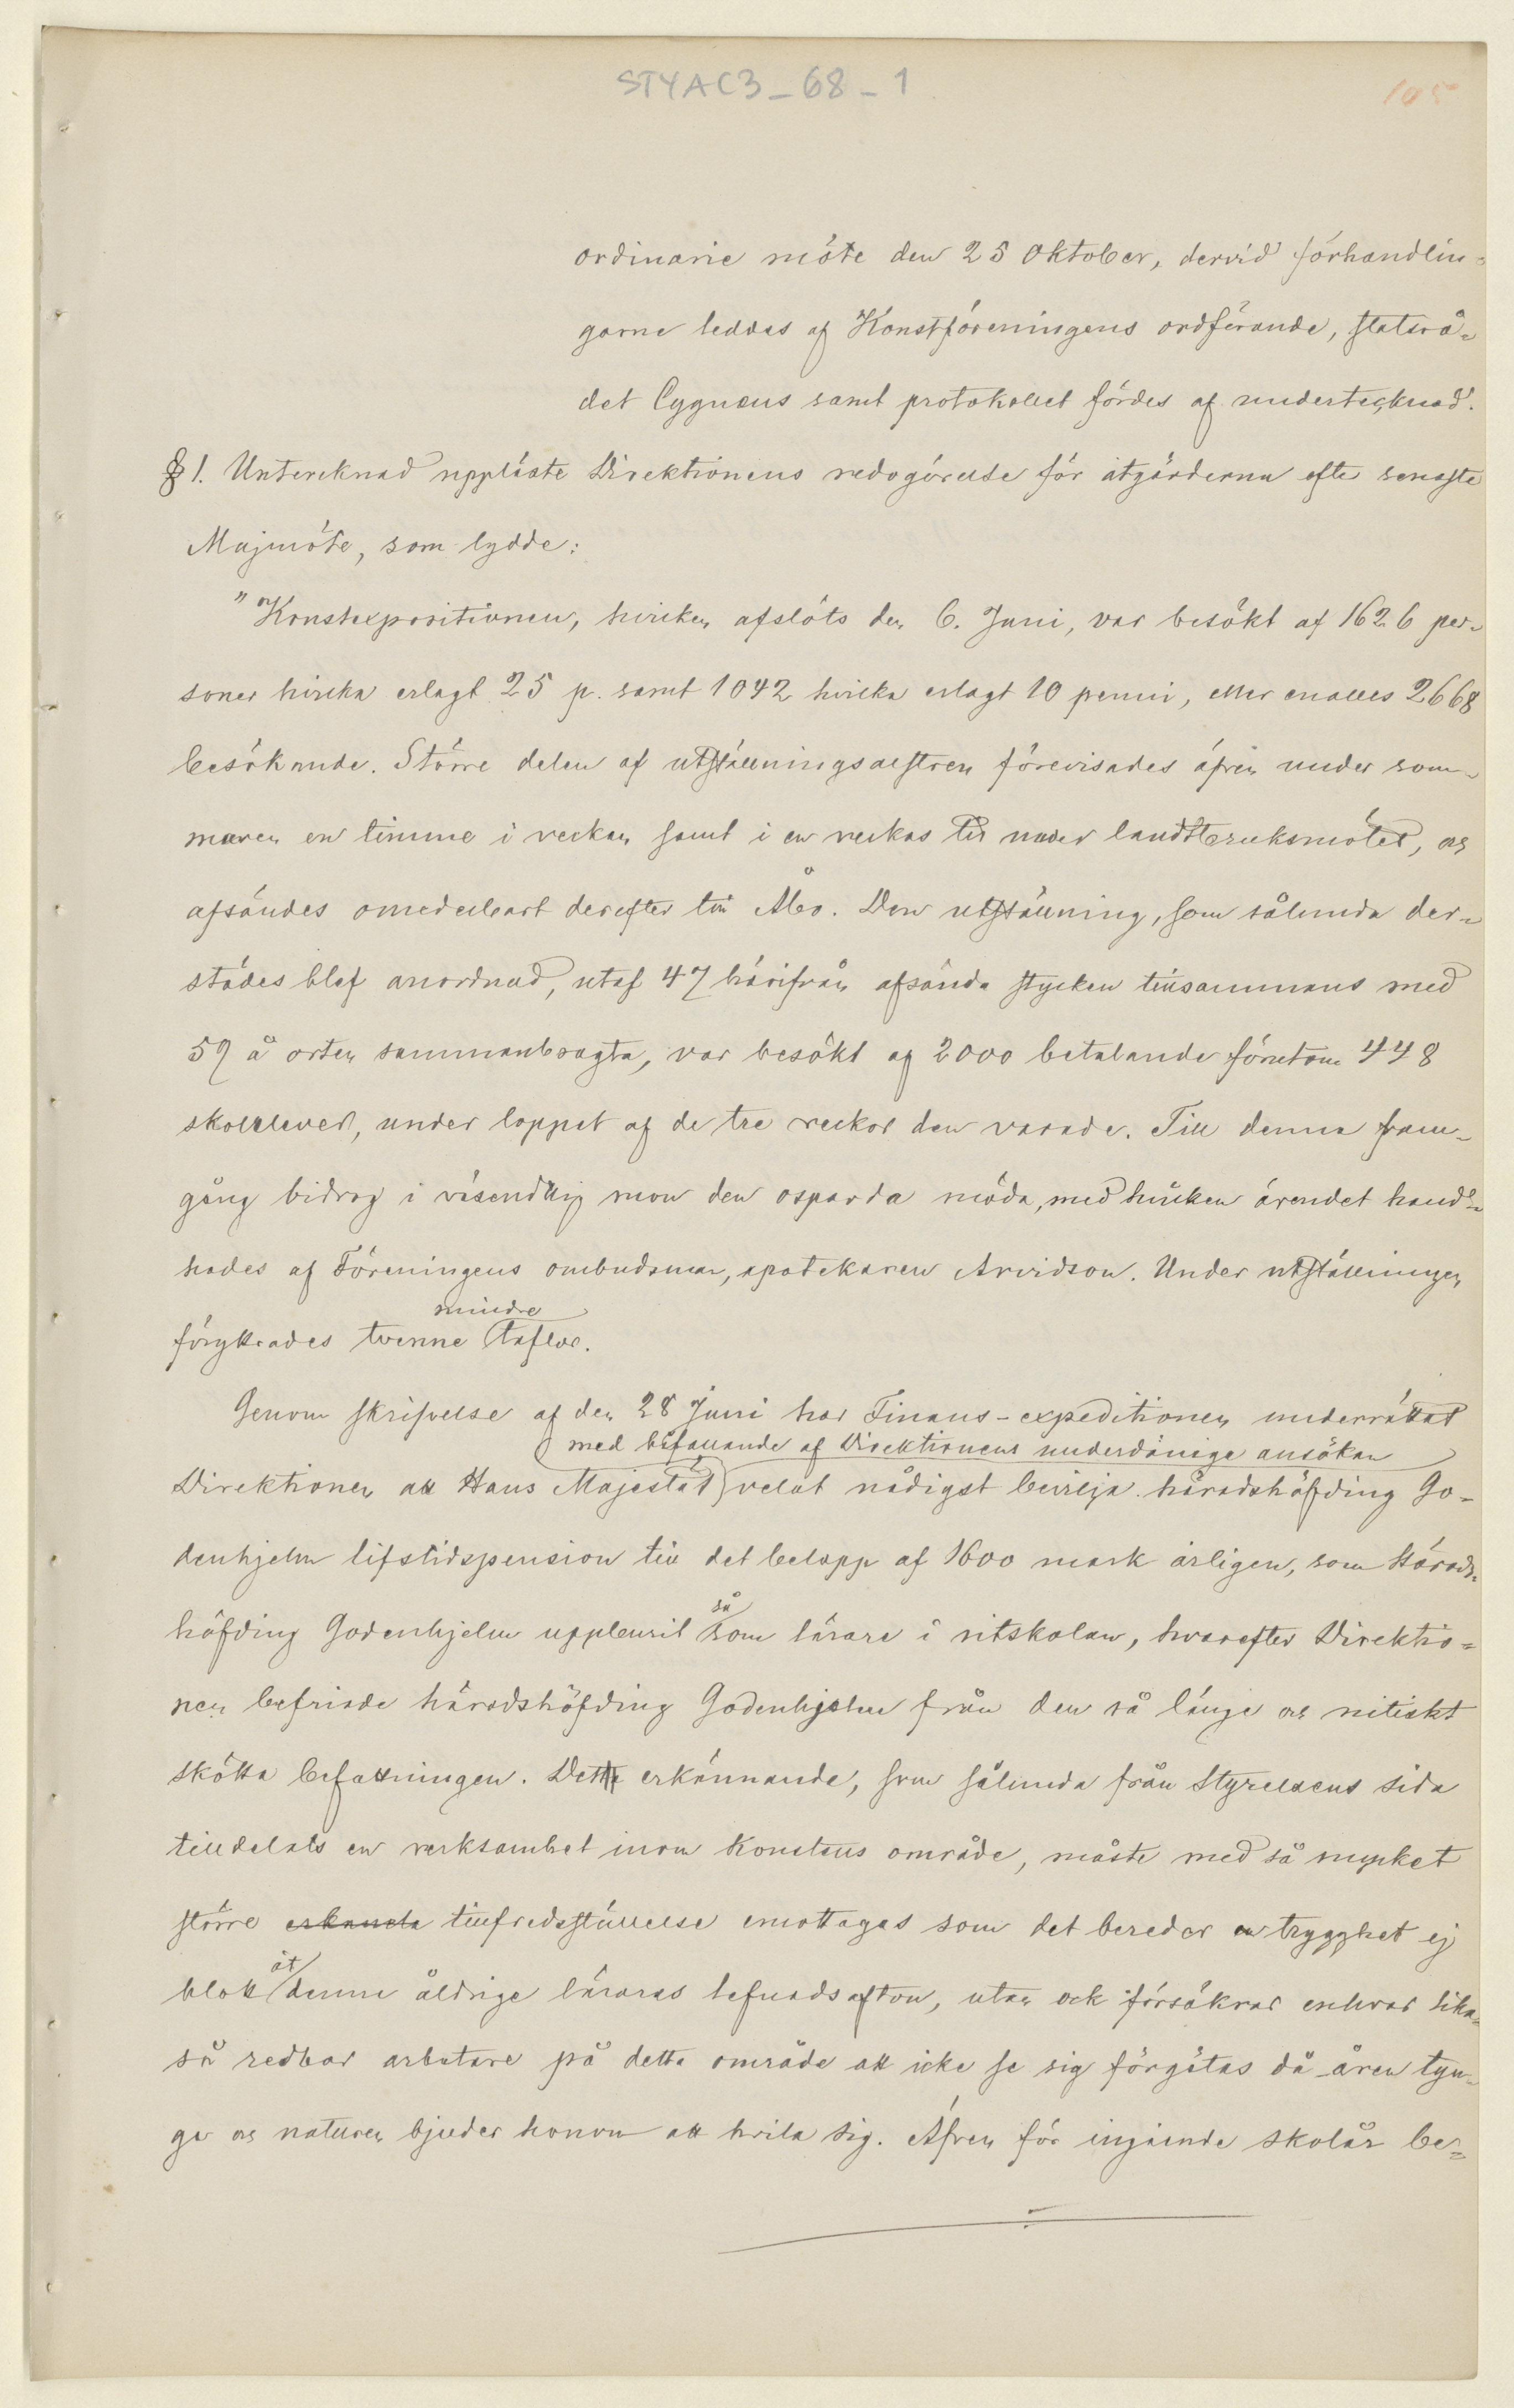 STYAC3_68_1
105
ordinarie möte den 25 Oktober, dervid förhandlin-
garne leddes af Konstföreningens ordförande, statsrå-
det Cygnæus samt protokollet fördes af undertecknad.
§ 1. Untecknad uppläste Direktionens redogörelse för åtgärderna efter senaste
Majmöte, som lydde:
"Konstexpositionen, hvilken afslöts den 6. Juni, var besökt af 1626 per-
soner hvilka erlagt 25 p. samt 1042 hvilka erlagt 10 penni, eller enalles 2668
besökande. Större delen af utställningsalstren förevisades äfven under som-
maren en timme i veckan samt i en veckas tid under landtbruksmötet, och
afsändes omedelbart derefter till Åbo. Den utställning, som sålunda der-
städes blef anordnad, utaf 47 härifrån afsända stycken tillsammans med
59 å orten sammanbragta, var besökt af 2000 betalande förutom 448
skolelever, under loppet af de tre veckor den varade. Till denna fram-
gång bidrog i väsendtlig mon den osparda möda, med hvilken ärendet hand-
hades af Föreningens ombudsman, apotekaren Arvidson. Under utställningen
mindre
förykrades tvenne taflor.
Genom skrifvelse af den 28 Juni har Finans-expeditionen underrättat
med bifallande af Direktionens underdånige ansökan
Direktionen att Hans Majestät velat nådigst bevilja häradshöfding Go-
denhjelm lifstidspension till det belopp af 1600 mark årligen, som Härads-
så
höfding Godenhjelm uppburit som lärare i ritskolan, hvarefter Direktio-
nen befriade häradshöfding Godenhjelm från den så länge och nitiskt
skötta befattningen. Detta erkännande, som sålunda från Styrelsens sida
tilldelats en verksamhet inom konstens område, måste med så mycket
större tillfredsställelse emottagas som det bereder en trygghet ej
åt
blott denne åldrige lärares lefnadsafton, utan ock försäkrar enhvar lika-
så redbar arbetare på detta område att icke se sig förgätas då åren tyn-
ga och naturen bjuder honom att hvila sig. Äfven för ingående skolår be-